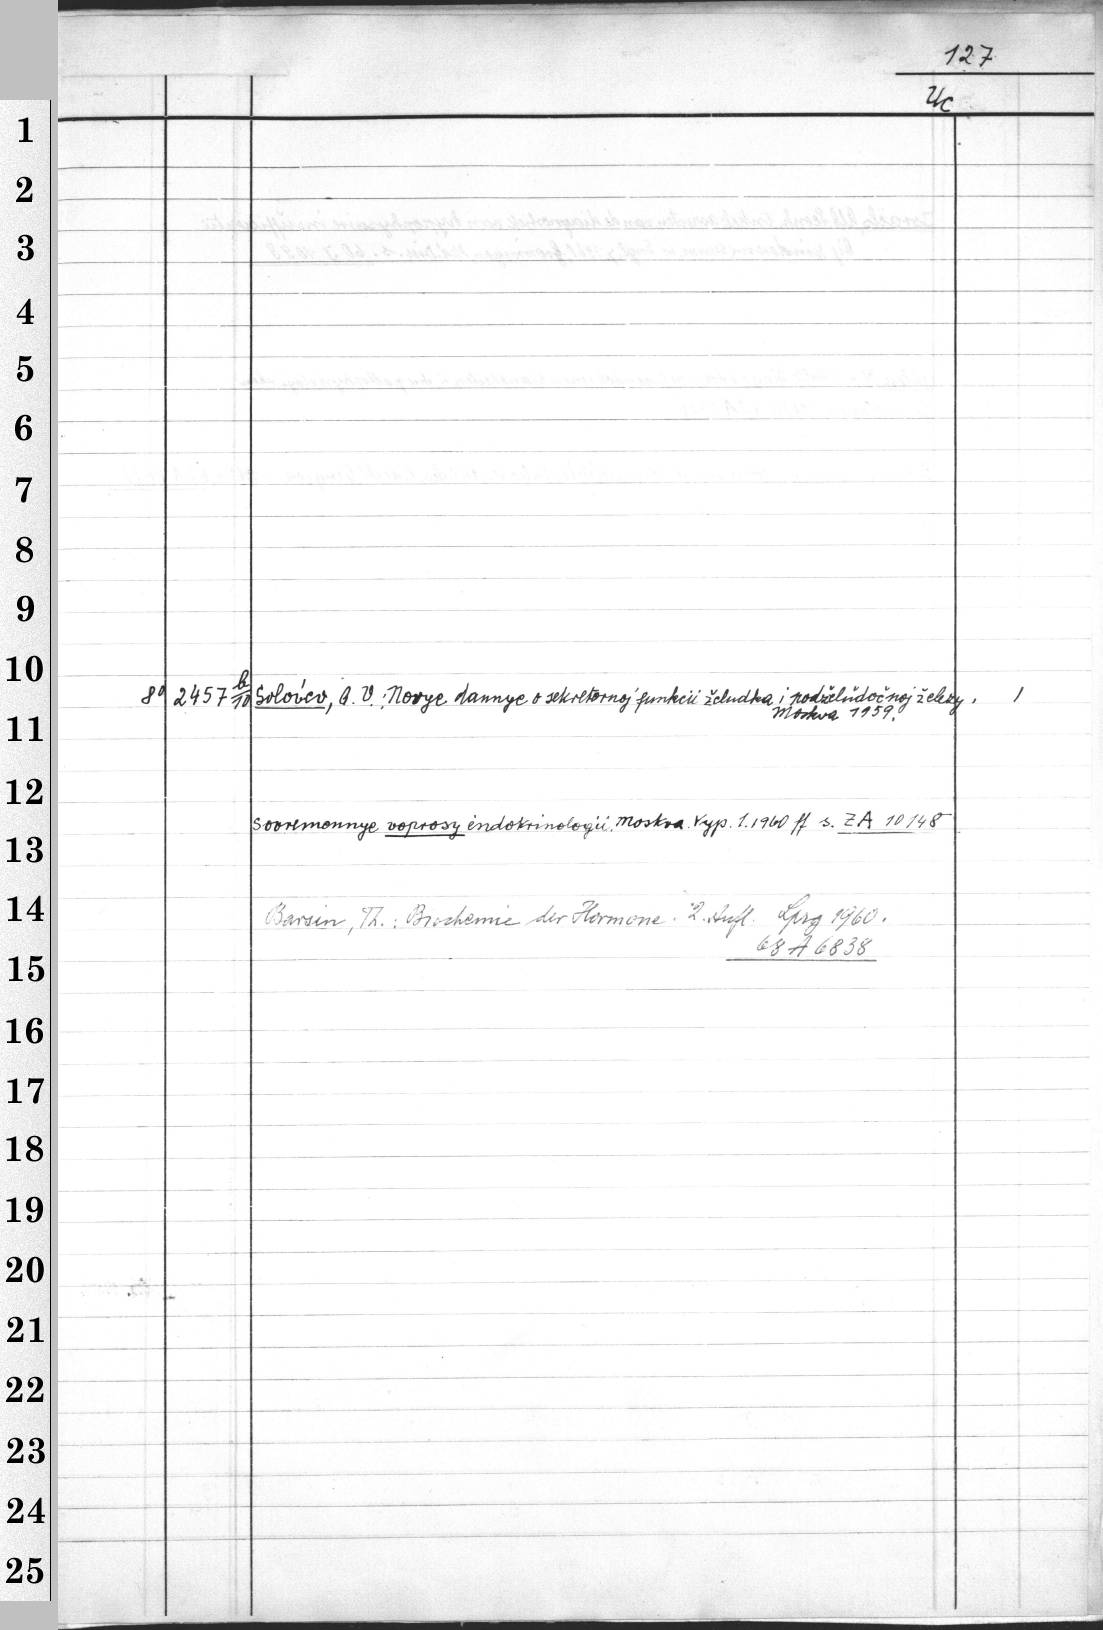 127
Uc
1
2
3
4
5
6
7
8
9
10
8° 2457 b/10 Solov'ev, A. V.: Novye dannye o sekretornoj funkcii želudka i podželudočnoj železy. 1
Moskva 1959.
11
12
Sovremennye voprosy ėndokrinologii. Moskva. Vyp. 1.1960 ff s. ZA 10148
13
14
Barsin, Th.: Biochemie der Hormone. 2. Aufl. Lpzg 1960.
68 A 6838
15
16
17
18
19
20
21
22
23
24
25